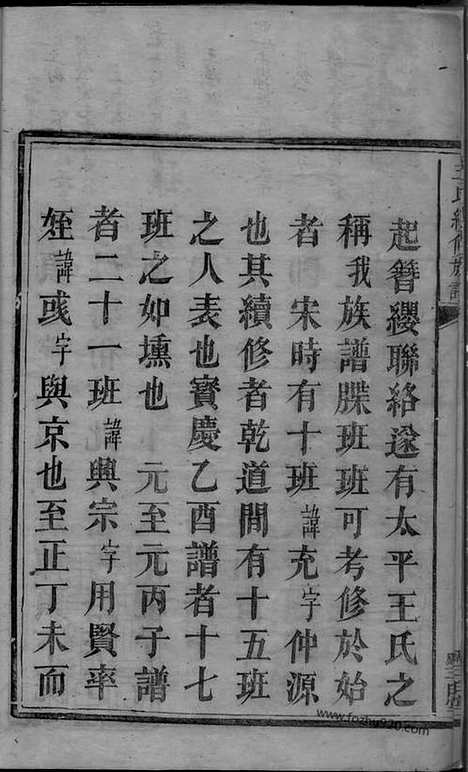 王氏續修族譜
起簪纓聯絡遂有太平王氏之
稱我族譜牒班班可考修於始
者 宋時有十班諱充字仲源
也其續修者乾道間有十五班
之人表也寶慶乙酉譜者十七
班之如壎也 元至元丙子譜
者二十一班諱興宗字用賢率
姪諱彧字與京也至正丁未而
www.fozhu920.com